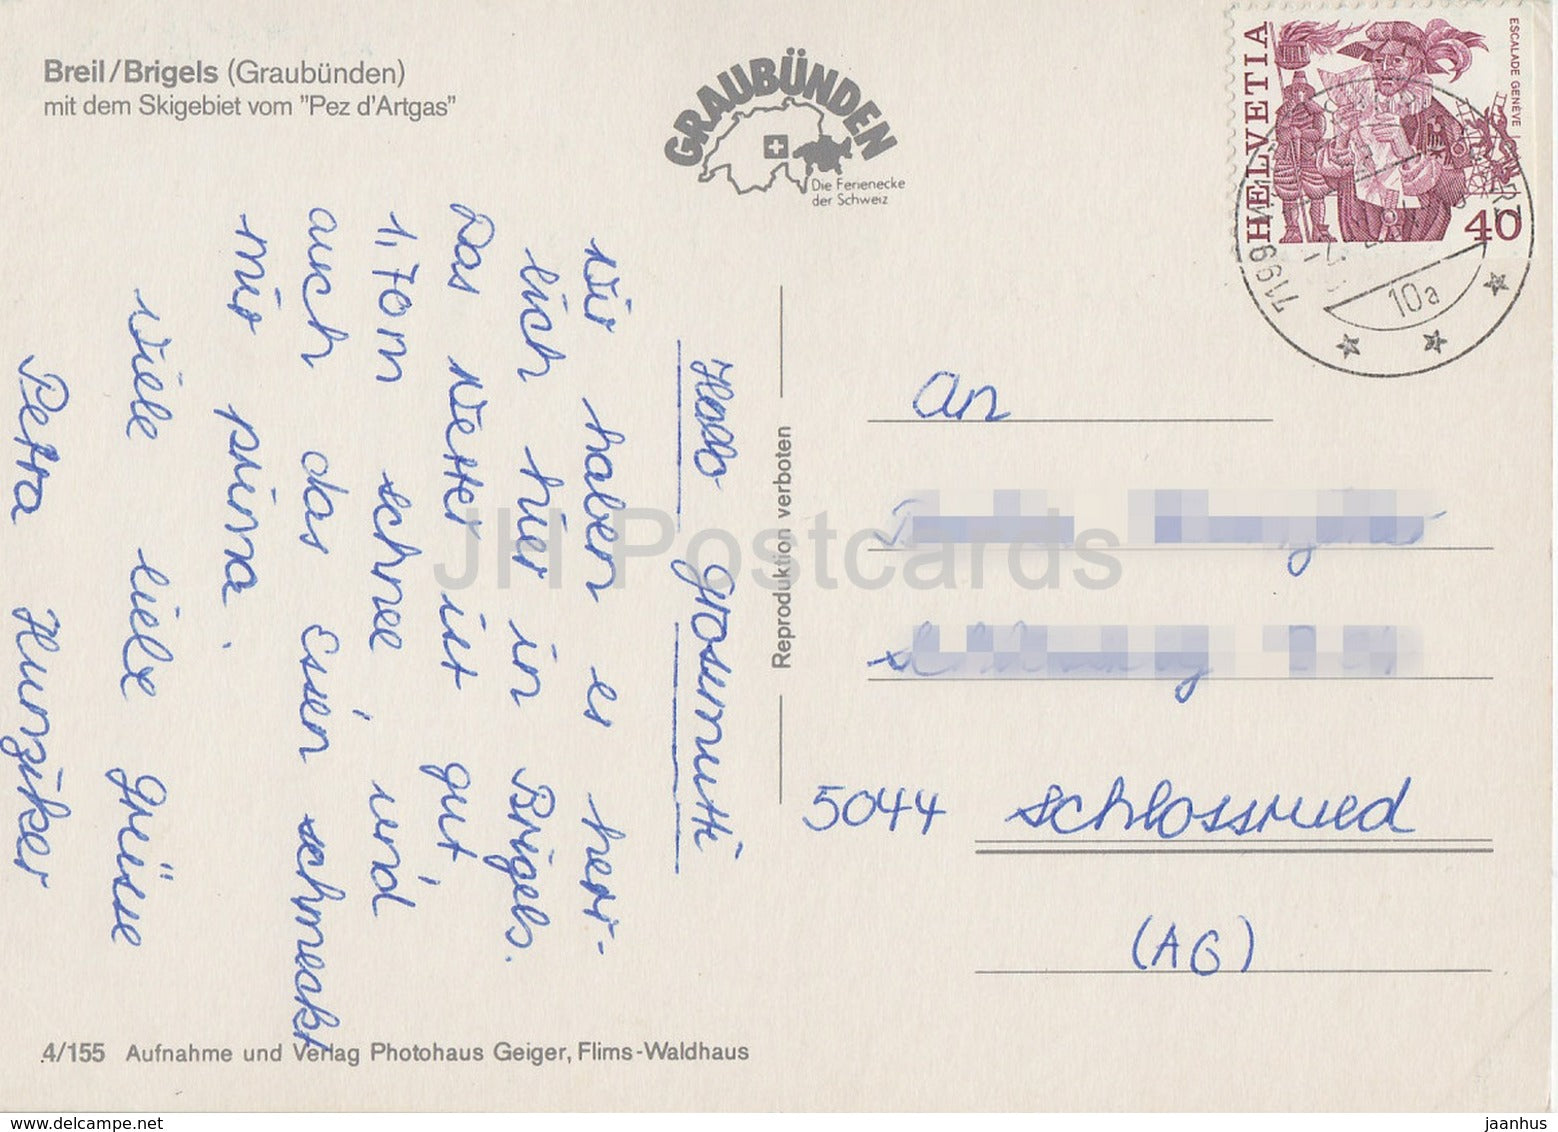 Breil/Brigels (Graubünden)
mit dem Skigebiet vom "Pez d'Artgas"
GRAUBÜNDEN
Die Ferienecke
der Schweiz
HELVETIA
ESCALADE GENÈVE
40
10a
Hallo Grosmutti
Wir haben es herr-
lich hier in Brigels.
Das Wetter ist gut
1,70m schnee, und
auch das Essen schmeckt
mir prima.
Viele liebe Grüsse
Petra Hunziker
Reproduktion verboten
An
5044 Schlossrued
(AG)
4/155 Aufnahme und Verlag Photohaus Geiger, Flims-Waldhaus
JH Postcards
www.delcampe.net
jaanhus